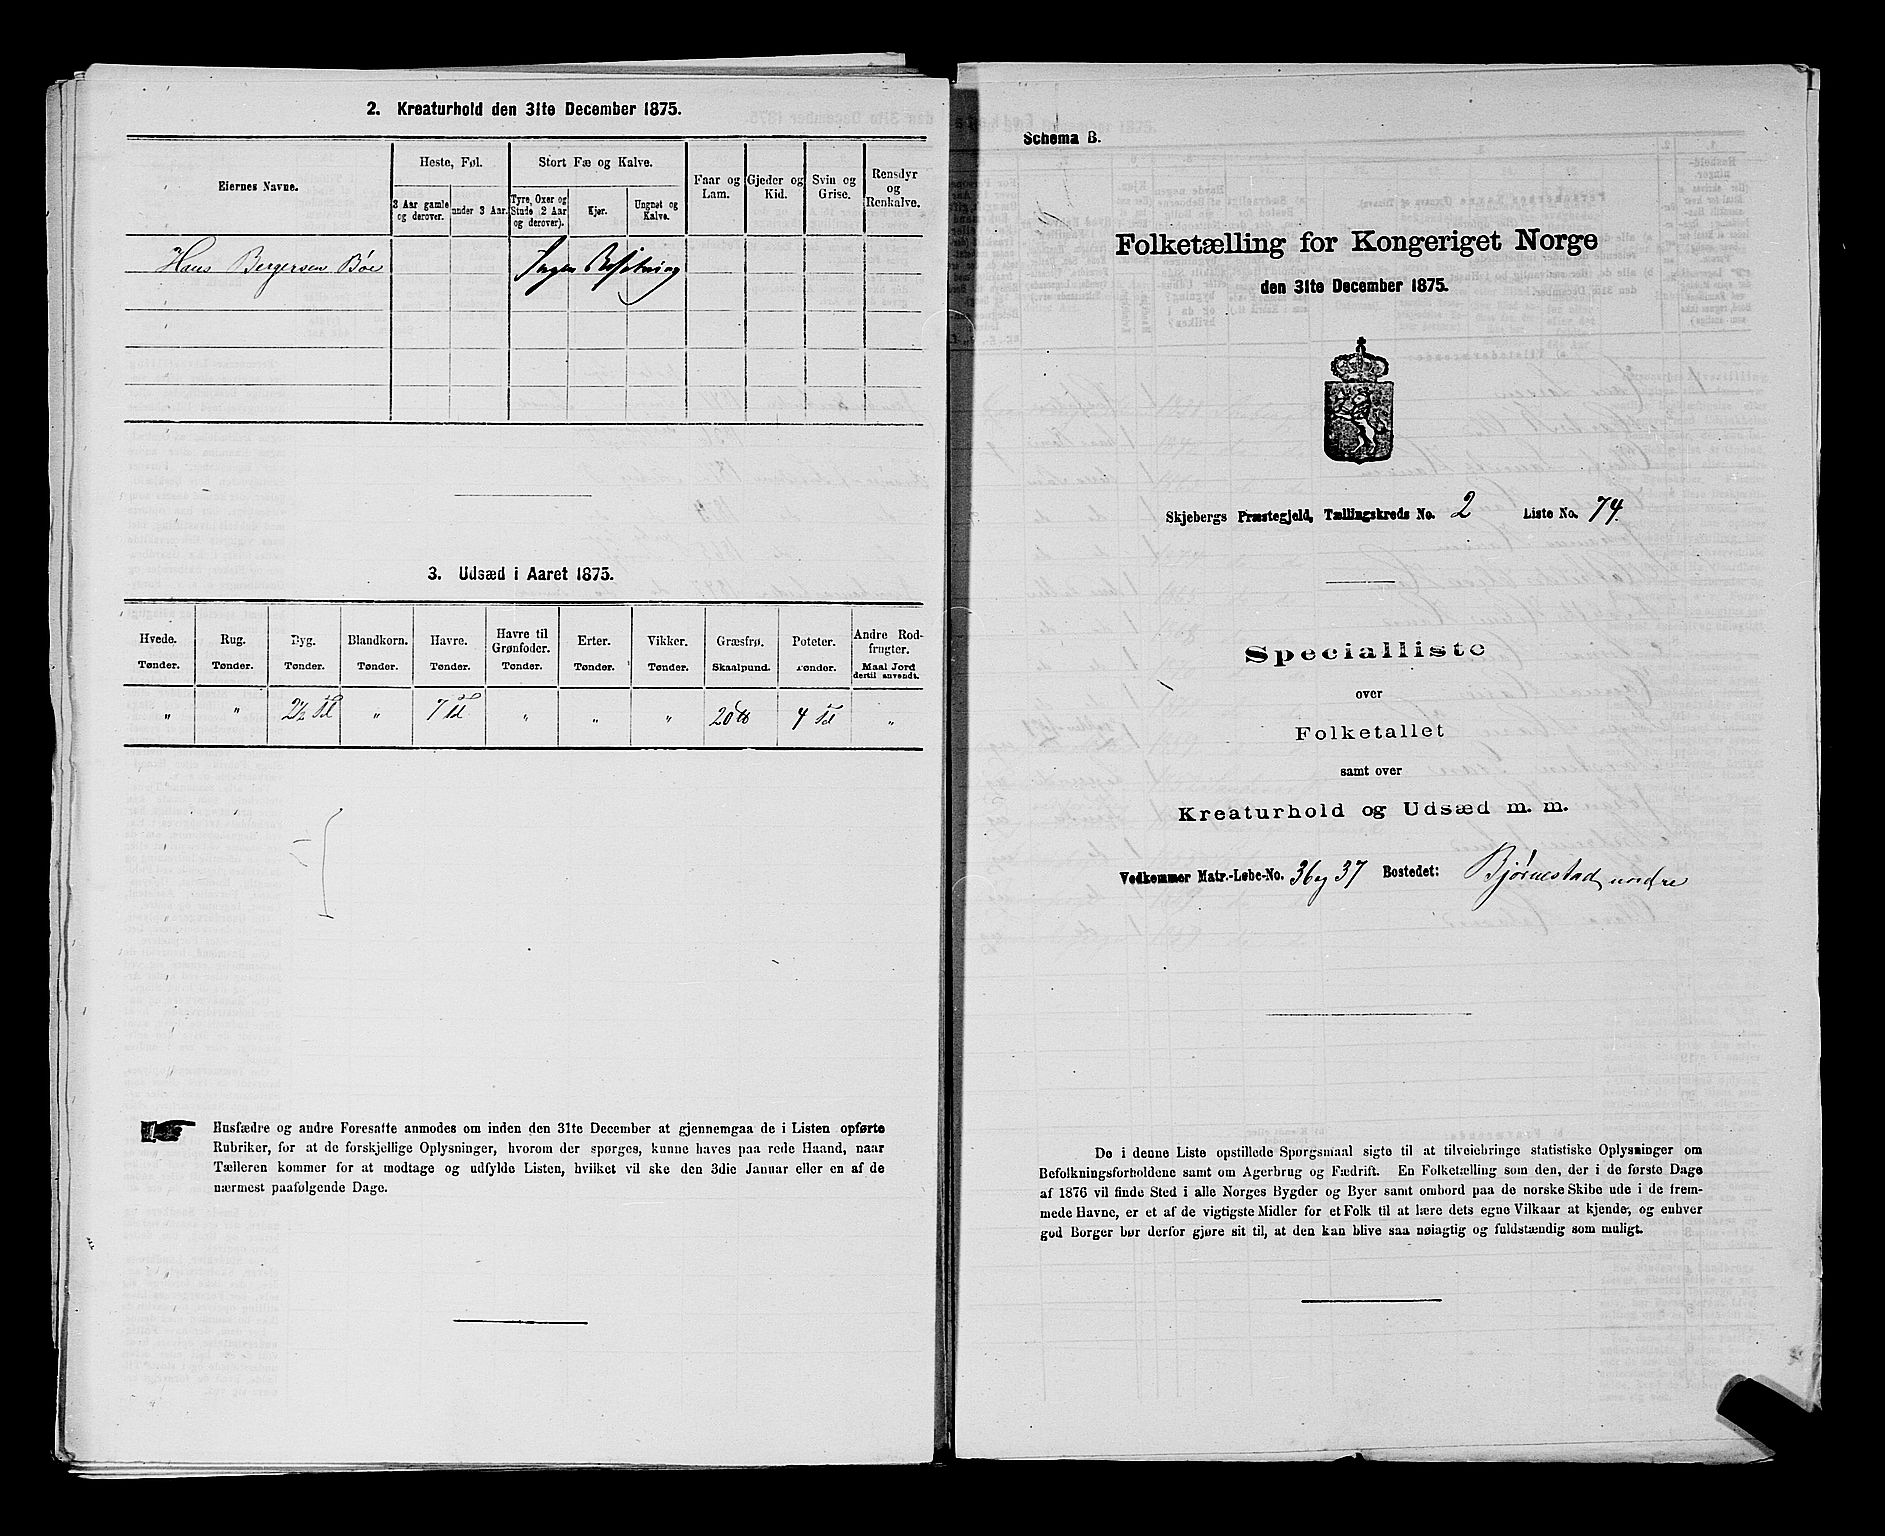 2. Kreaturhold den 31te December 1875.
Eiernes Navne.
Heste, Føl.
Stort Fæ og Kalve.
Faar og Lam.
Gjeder og Kid.
Svin og Grise.
Rensdyr og Renkalve.
3 Aar gamle og derover.
under 3 Aar.
Tyre, Oxer og Stude (2 Aar og derover).
Kjør.
Ungnøt og Kalve.
Hans Bergersen Bøe
Ingen Besætning
3. Udsæd i Aaret 1875.
Hvede. Rug. Byg. Blandkorn. Havre. Havre til Grønfoder. Erter. Vikker. Græsfrø. Poteter. Andre Rodfrugter.
Tønder. Tønder. Tønder. Tønder. Tønder. Tønder. Tønder. Tønder. Skaalpund. Tønder. Maal Jord dertil anvendt.
„ „ 2½ Td „ 7 Td „ „ „ 20 ℔ 4 Td „
Husfædre og andre Foresatte anmodes om inden den 31te December at gjennemgaa de i Listen opførte
Rubriker, for at de forskjellige Oplysninger, hvorom der spørges, kunne haves paa rede Haand, naar
Tælleren kommer for at modtage og udfylde Listen, hvilket vil ske den 3die Januar eller en af de
nærmest paafølgende Dage.
Schema B.
Folketælling for Kongeriget Norge
den 31te December 1875.
Skjebergs Præstegjeld, Tællingskreds No. 2 Liste No. 74.
Specialliste
over
Folketallet
samt over
Kreaturhold og Udsæd m. m.
Vedkommer Matr.-Løbe-No. 36 og 37 Bostedet: Bjørnestad nordre
De i denne Liste opstillede Spørgsmaal sigte til at tilveiebringe statistiske Oplysninger om
Befolkningsforholdene samt om Agerbrug og Fædrift. En Folketælling som den, der i de første Dage
af 1876 vil finde Sted i alle Norges Bygder og Byer samt ombord paa de norske Skibe ude i de frem-
mede Havne, er et af de vigtigste Midler for et Folk til at lære dets egne Vilkaar at kjende, og enhver
god Borger bør derfor gjøre sit til, at den kan blive saa nøiagtig og fuldstændig som muligt.